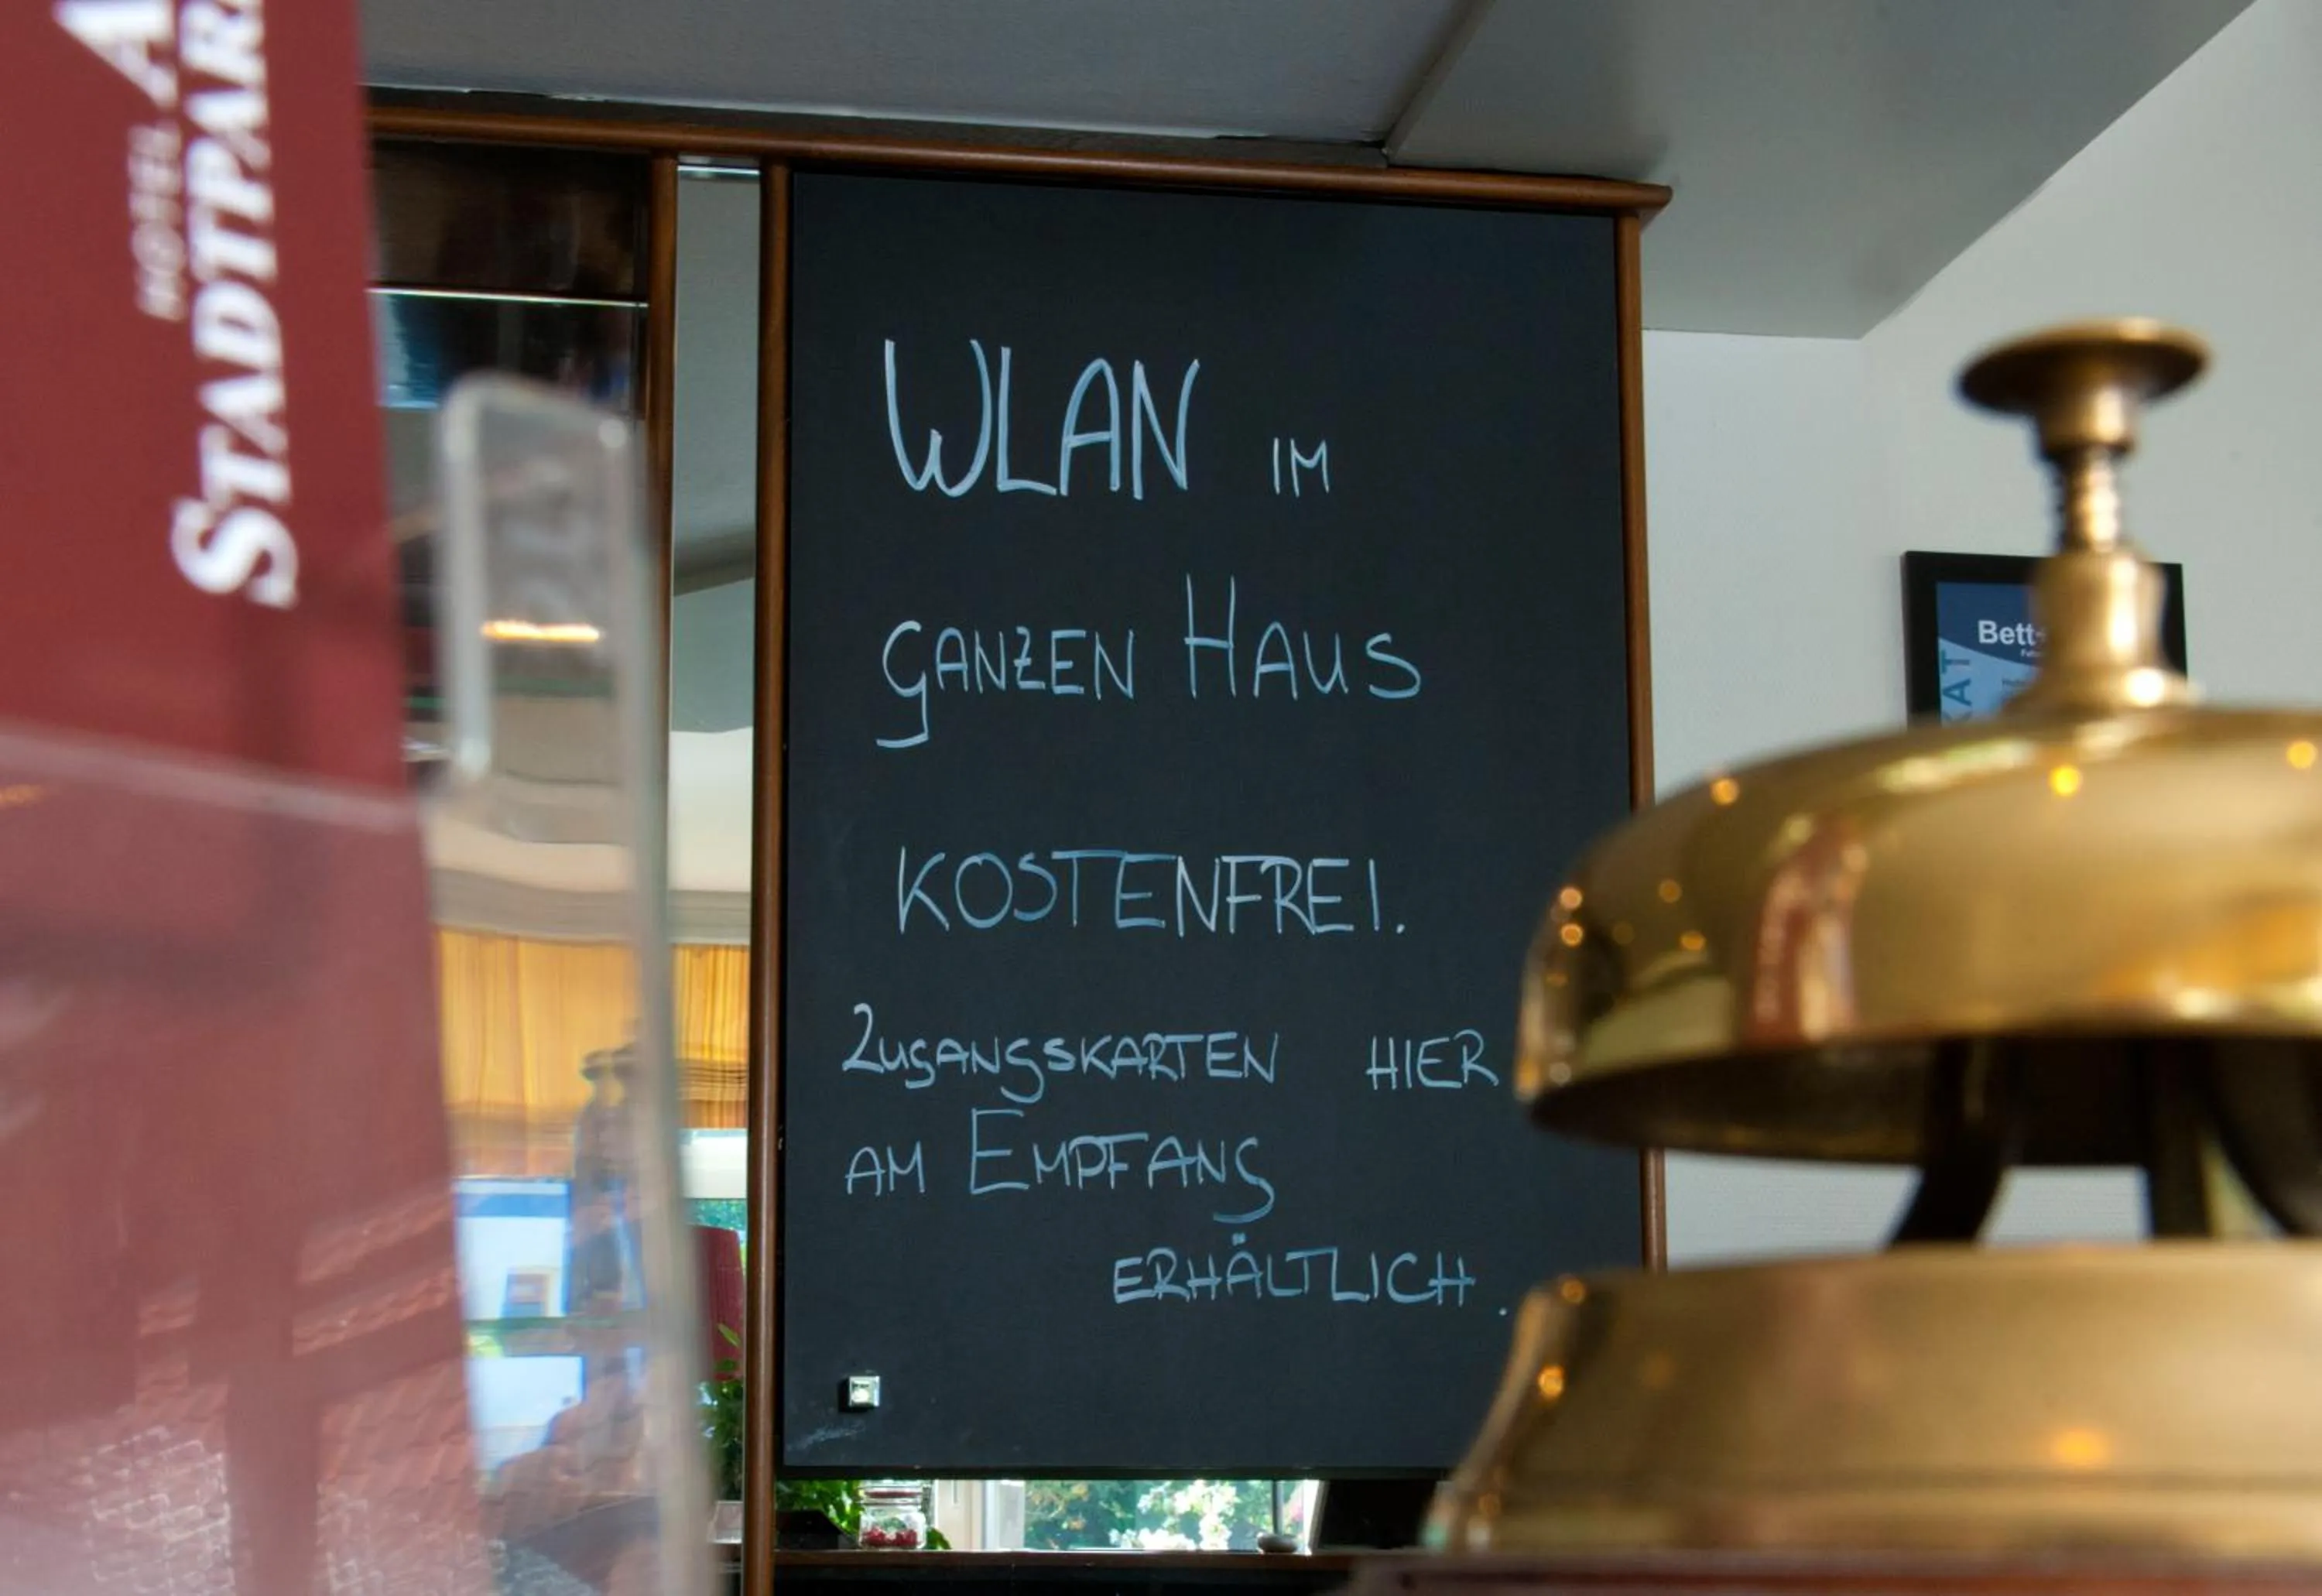 HOTEL A
STADTPAR
WLAN IM
GANZEN HAUS
KOSTENFREI.
ZUGANGSKARTEN HIER
AM EMPFANG
ERHÄLTLICH.
Bett
KAT